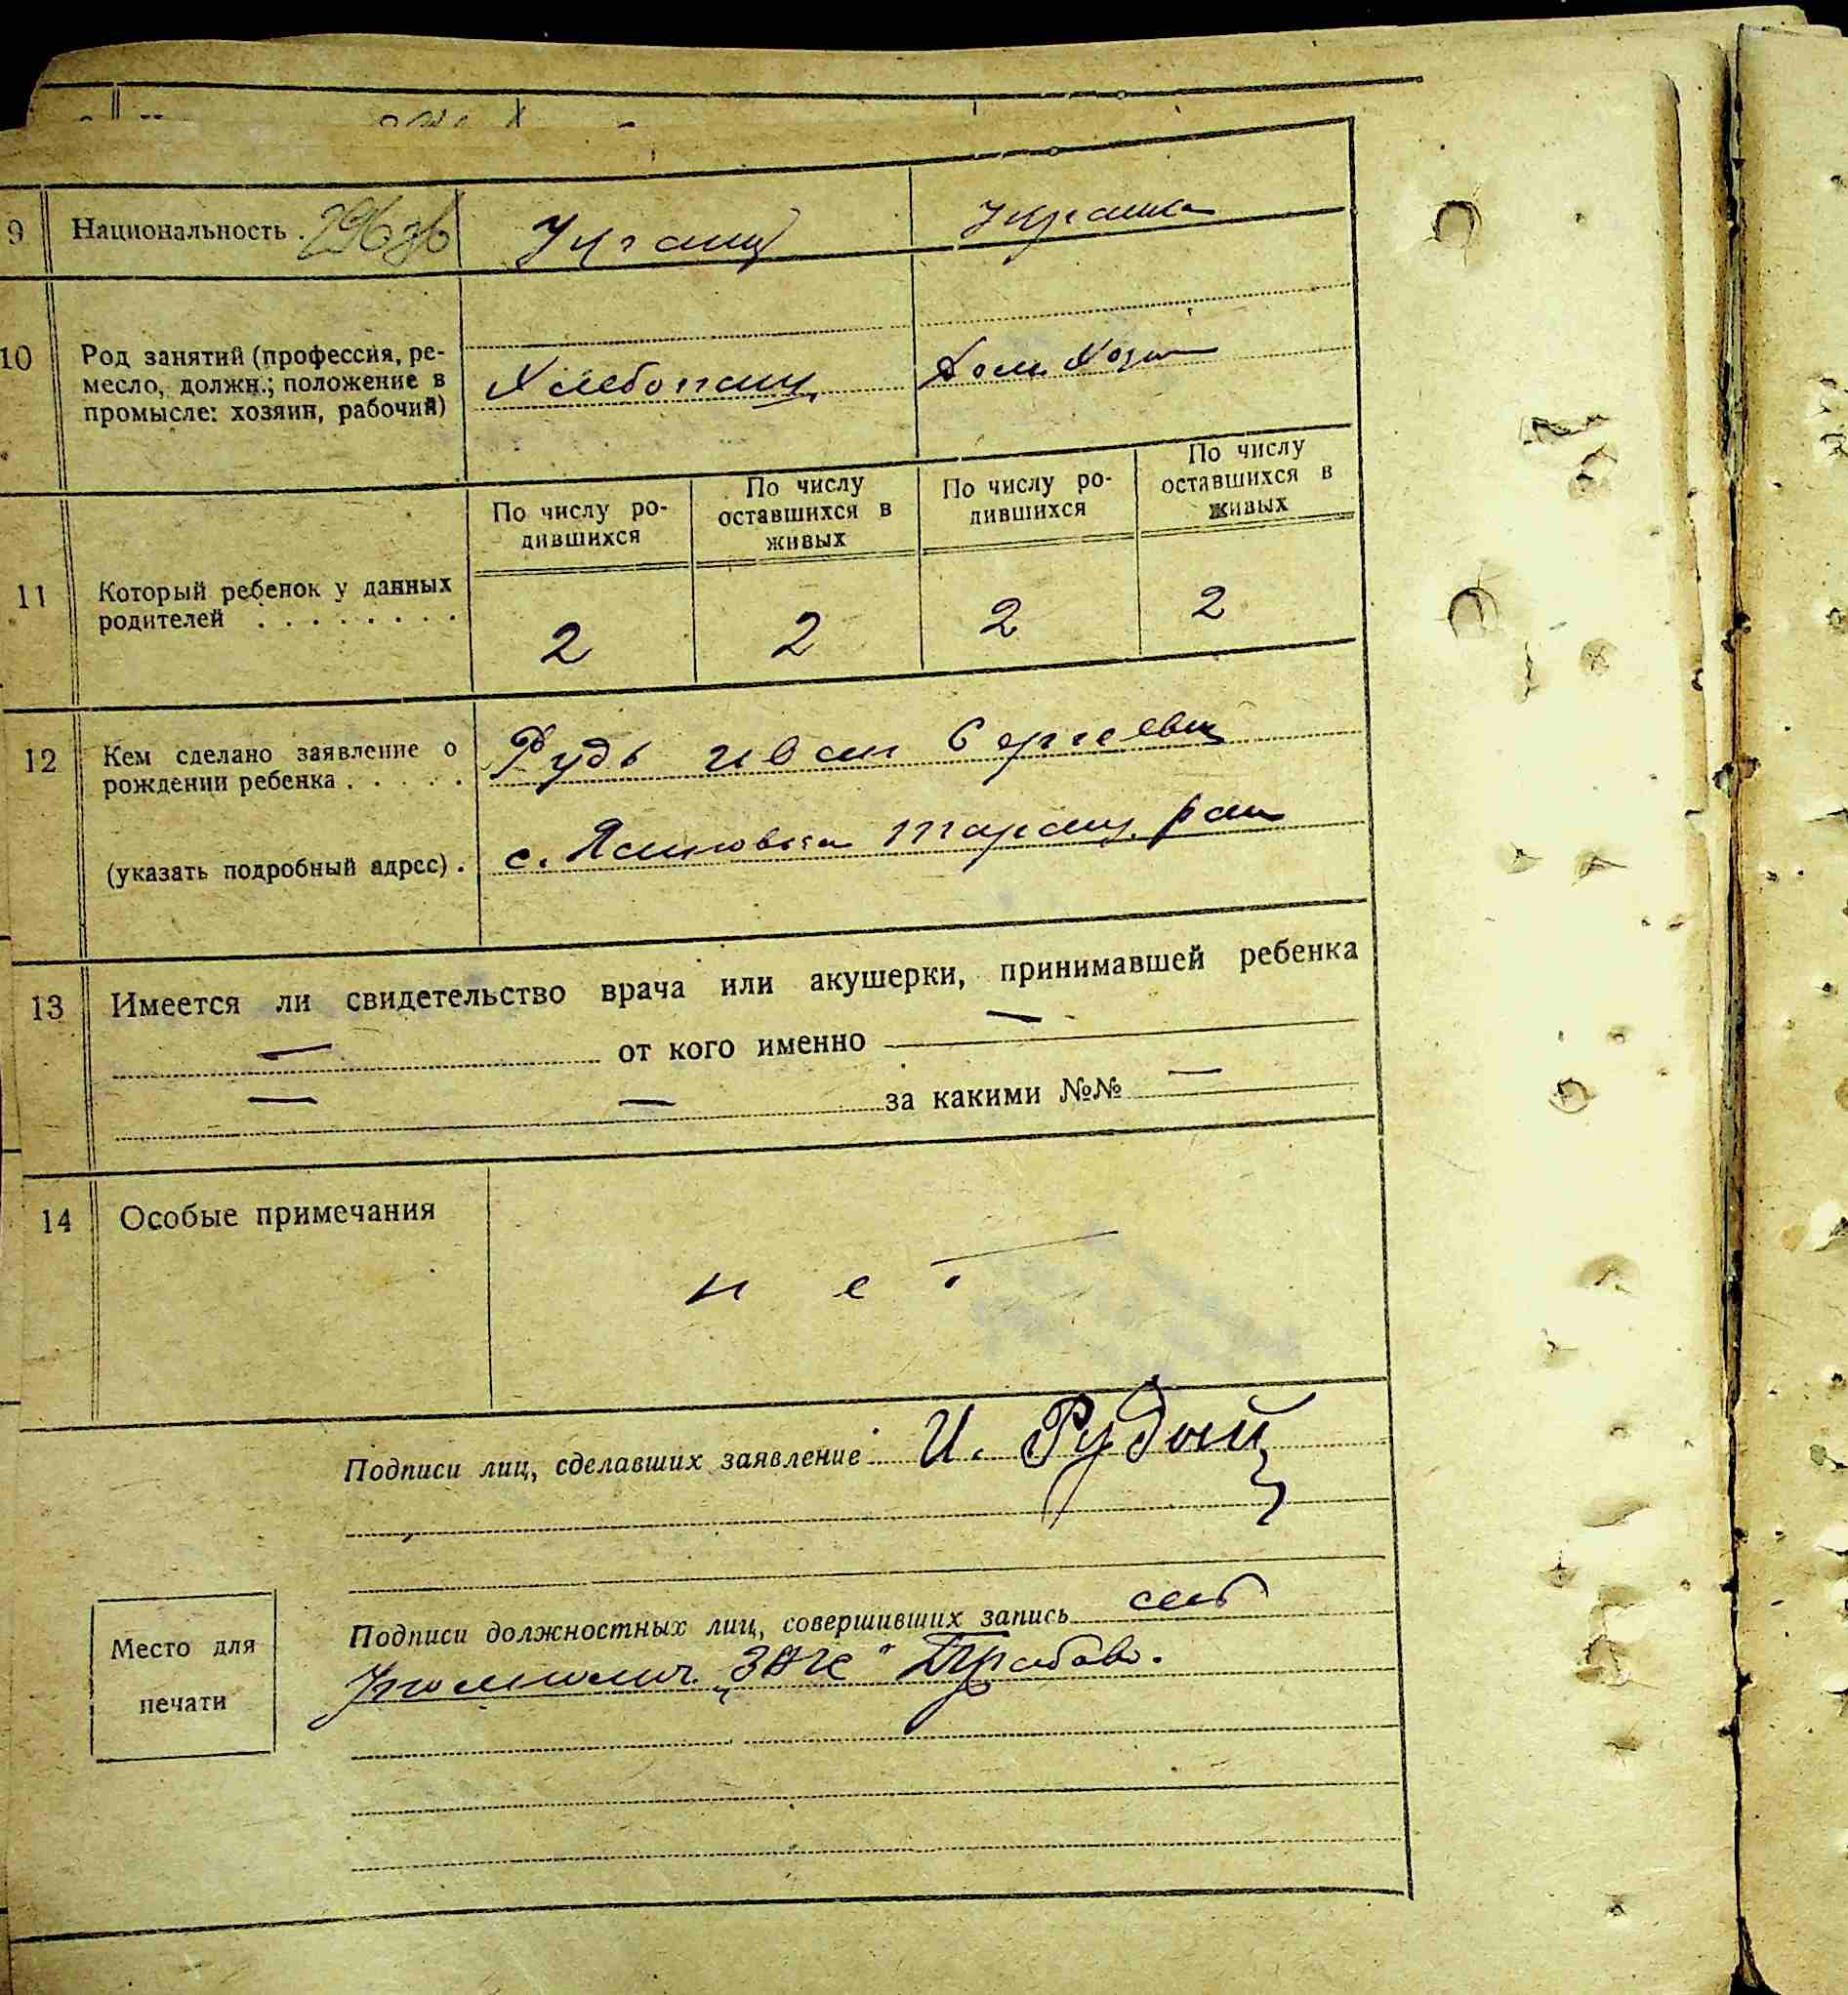 9 Национальность . Украинец Украинка
10 Род занятий (профессия, ре-
месло, должн.; положение в
промысле: хозяин, рабочий)
Хлебопаш. Дом. Хоз
По числу ро-
дившихся
По числу
оставшихся в
живых
По числу ро-
дившихся
По числу
оставшихся в
живых
11 Который ребенок у данных
родителей . . . . . . . .
2 2 2 2
12 Кем сделано заявление о
рождении ребенка . . . . .
Рудь Иван Сергеевич
(указать подробный адрес) . с. Таращ. рай
13 Имеется ли свидетельство врача или акушерки, принимавшей ребенка
— от кого именно —
— — за какими №№ —
14 Особые примечания
нет
Подписи лиц, сделавших заявление И. Рудый
Подписи должностных лиц, совершивших запись
"ЗАГС"
Место для
печати